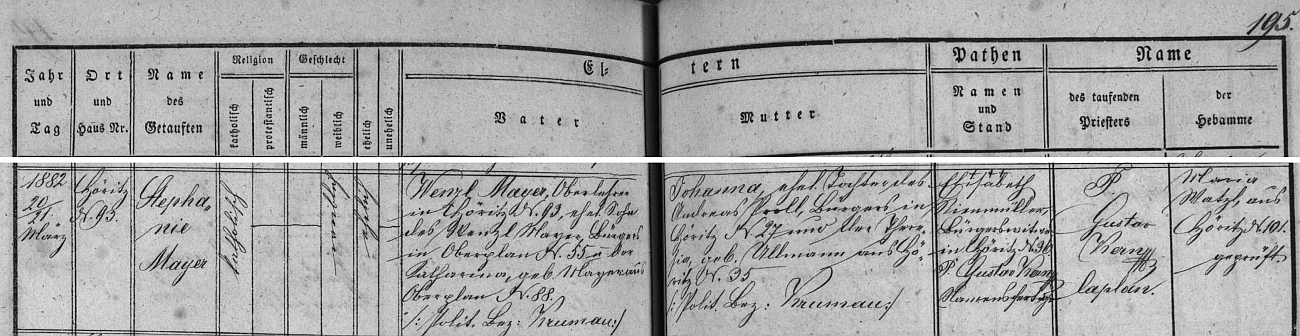 195.
Jahr und Tag
Ort und Haus Nr.
Name des Getauften
Religion
katholisch
protestantisch
Geschlecht
männlich
weiblich
ehelich
unehelich
El- tern
Vater
Mutter
Pathen
Namen und Stand
Name
des taufenden Priesters
der Hebamme
1882
20/21
März
Höritz
N. 93.
Stepha-
nie
Mayer
katholisch
Wenzl Mayer, Oberlehrer
in Höritz N. 93, ehel. Sohn
des Wenzl Mayer, Bürgers
in Oberplan N. 55 u. der
Katharina, geb. Mayer aus
Oberplan N. 88.
/: Polit. Bez: Krumau :/
Johanna, ehel. Tochter des
Andreas Proll, Bürgers in
Höritz N. 27 und der There-
sia, geb. Ullmann aus Hö-
ritz N. 35
/: Polit. Bez: Krumau :/
Elisabeth
Bürgerswitwe
in Höritz N. 36
P. Gustav
P.
Gustav
Caplan.
Maria
Watzl, aus
Höritz N. 101.
geprüft.